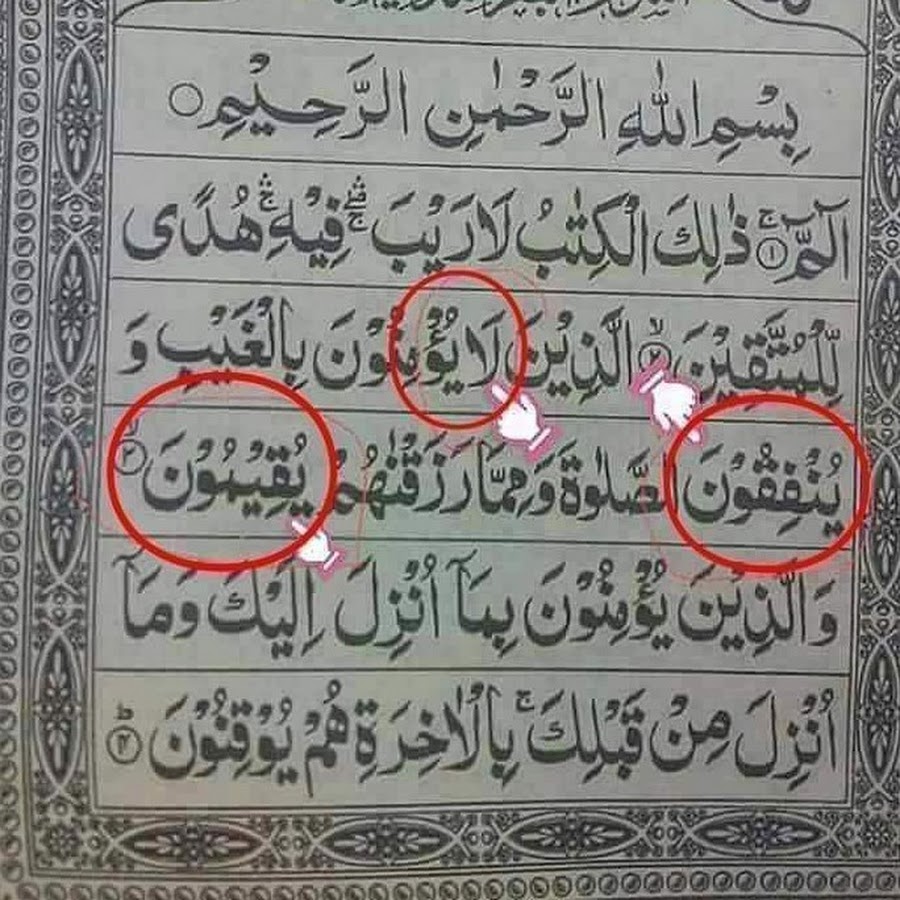 بِسْمِ اللّٰهِ الرَّحْمٰنِ الرَّحِيْمِ ○
الٓمّٓ ۚ ١ ذٰلِكَ الْكِتٰبُ لَا رَيْبَ ۛۚ فِيْهِ ۛۚ هُدًى
لِّلْمُتَّقِيْنَ ۙ ٢ الَّذِيْنَ لَا يُؤْمِنُوْنَ بِالْغَيْبِ وَ
يُنْفِقُوْنَ الصَّلٰوةَ وَمِمَّا رَزَقْنٰهُمْ يُقِيْمُوْنَ ۙ ٣
وَالَّذِيْنَ يُؤْمِنُوْنَ بِمَآ اُنْزِلَ اِلَيْكَ وَمَآ
اُنْزِلَ مِنْ قَبْلِكَ ۚ بِالْاٰخِرَةِ هُمْ يُوْقِنُوْنَ ؕ ٤